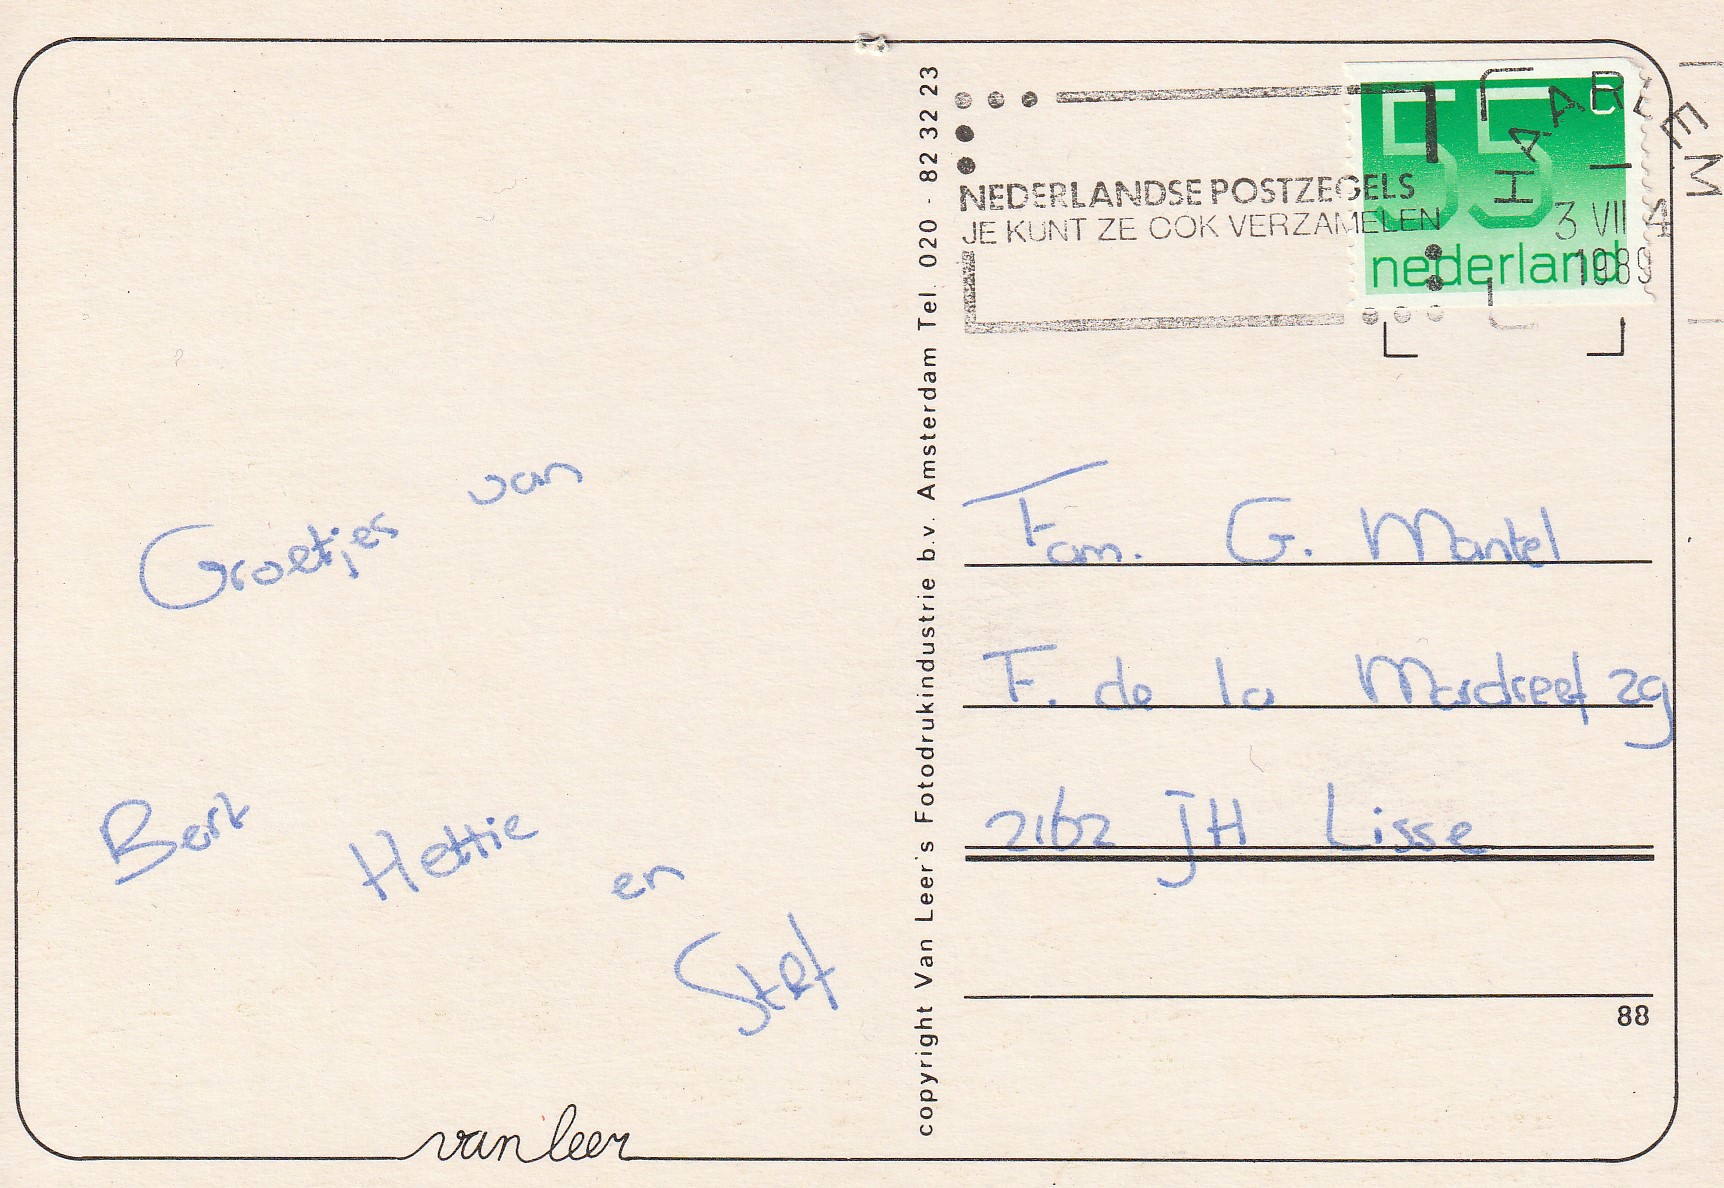 Groetjes van
Bert Hettie en
Stef
van leer
copyright Van Leer's Fotodrukindustrie b.v. Amsterdam Tel. 020 - 82 32 23
NEDERLANDSE POSTZEGELS
JE KUNT ZE OOK VERZAMELEN
55 c
nederland
HAARLEM
3 VII
1989
Fam. G. Mantel
F. de la Mardreef 29
2162 JH Lisse
88